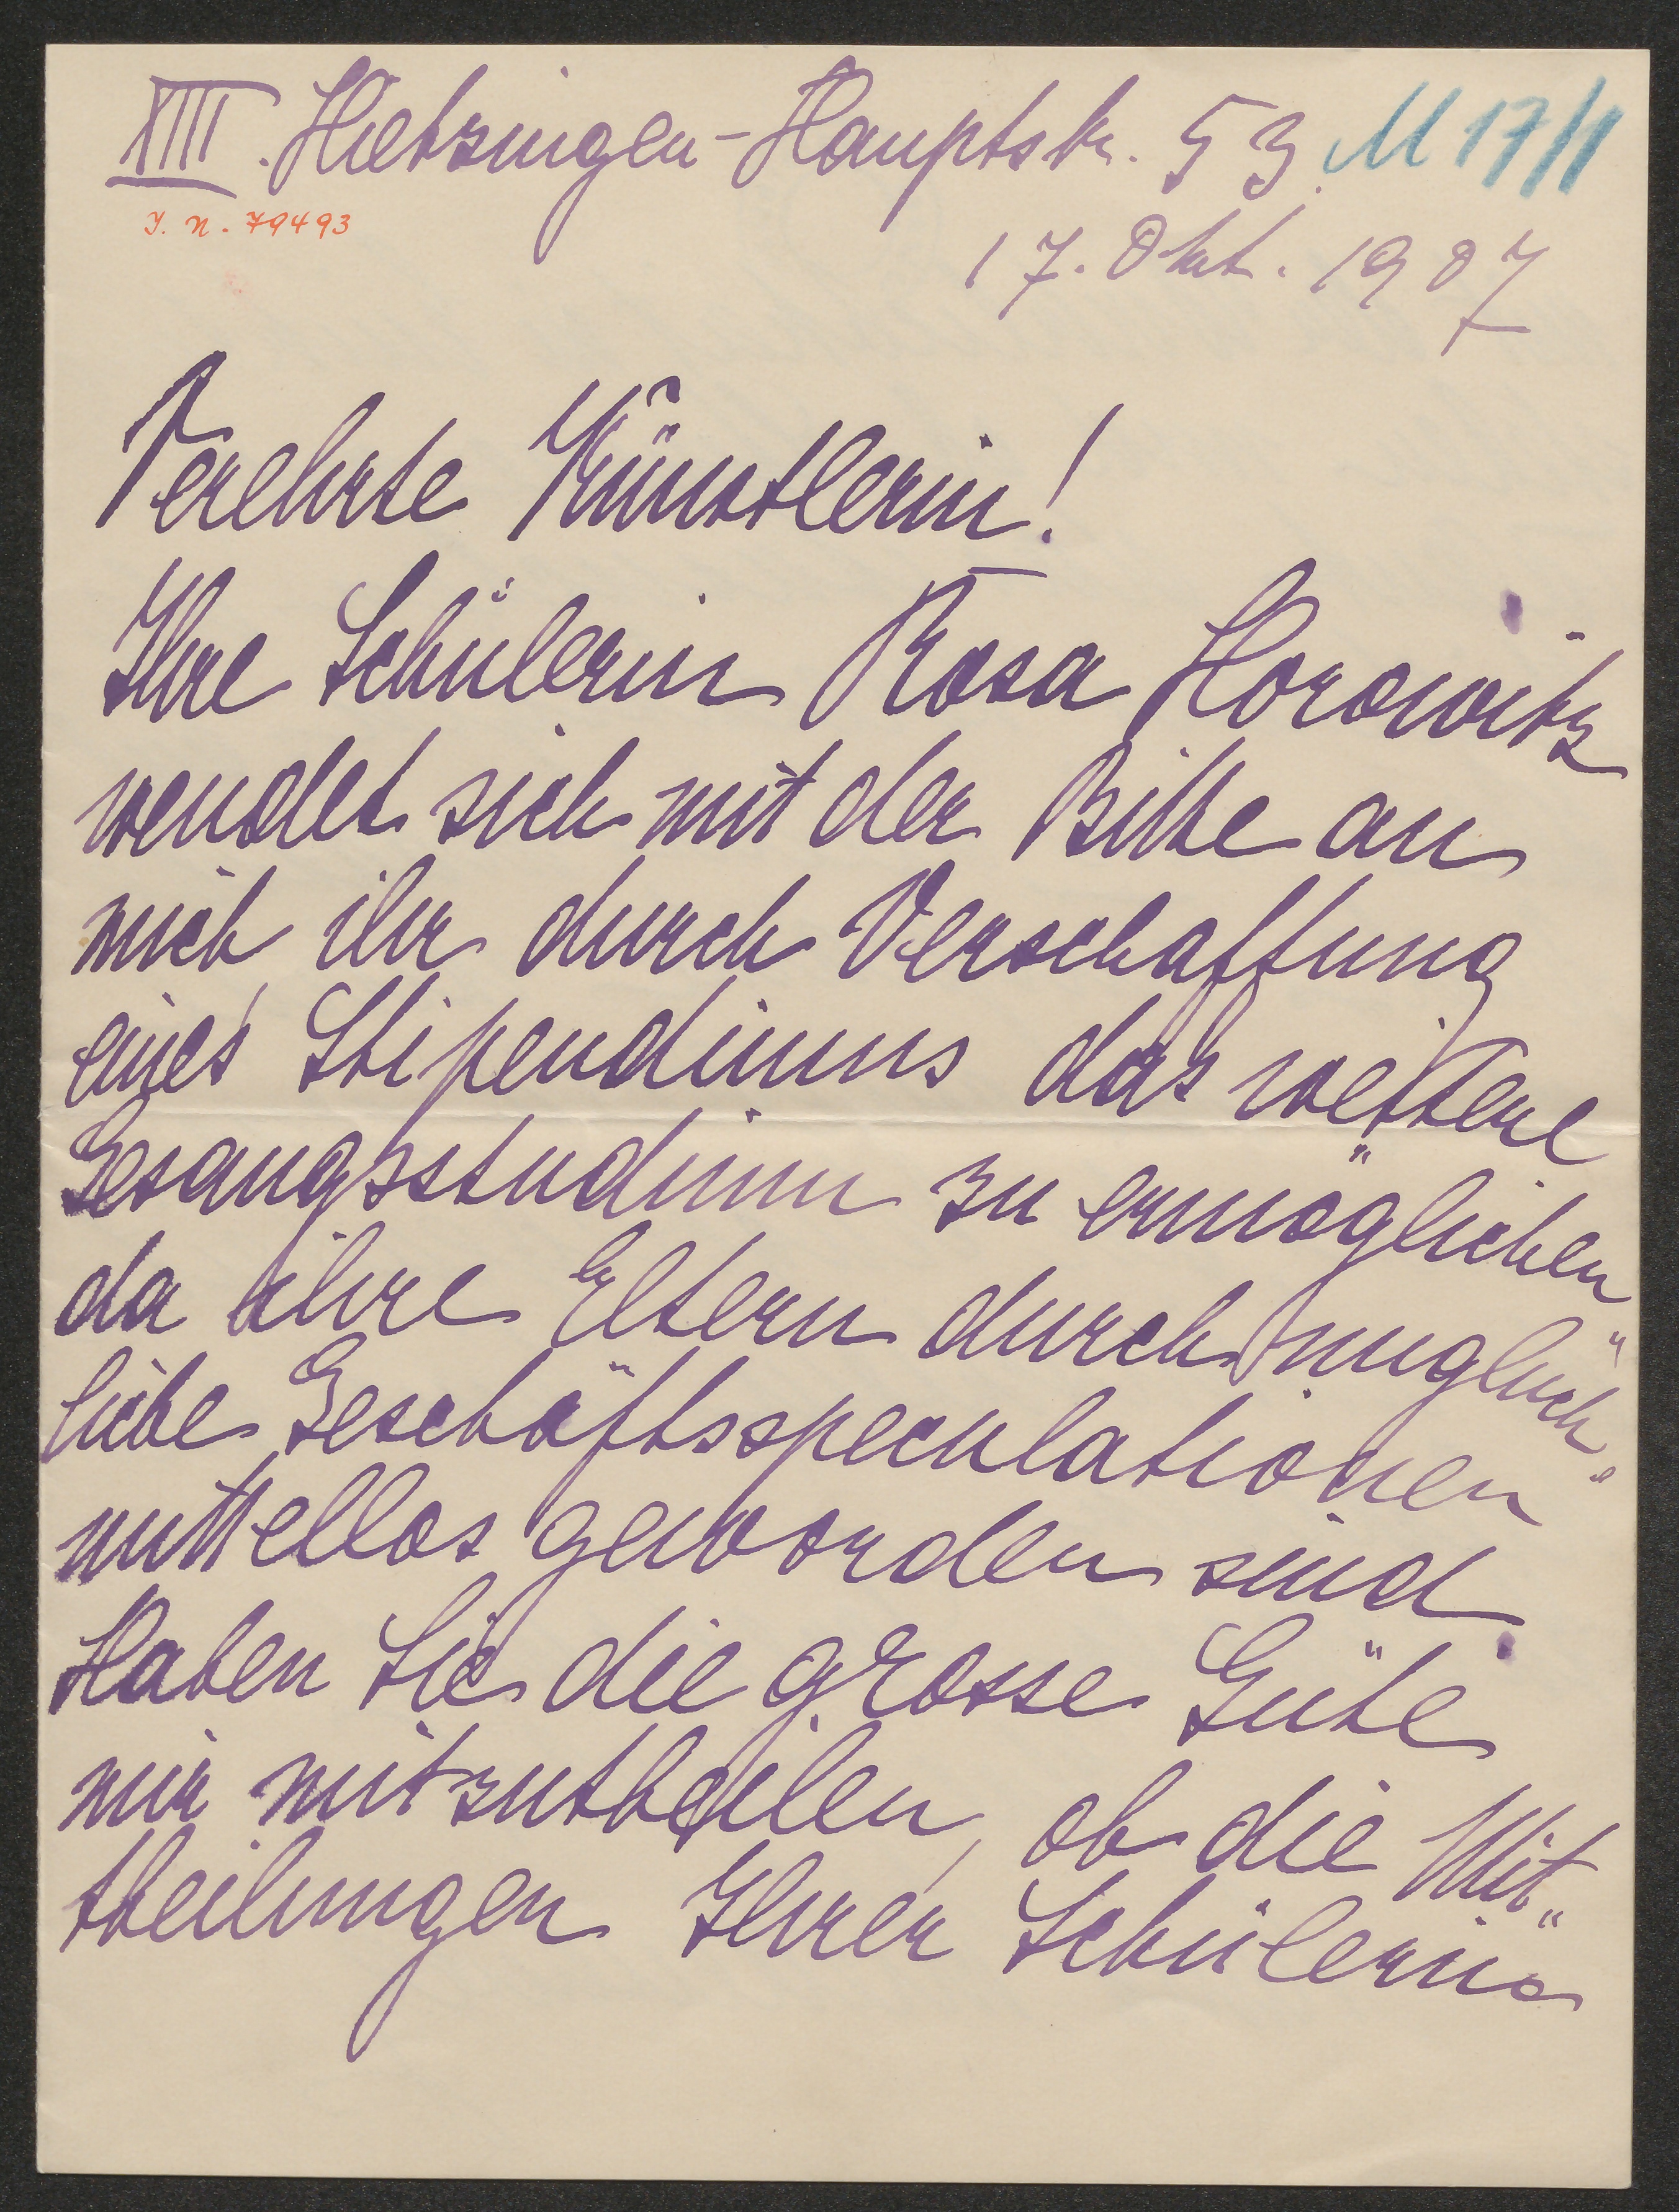 XIII. Hietzingen-Hauptstr. 53. M 17/1
I. N. 79493
17. Okt. 1907
Verehrte Künstlerin!
Ihre Schülerin Rosa Horowitz
wendet sich mit der Bitte an
mich, ihr durch Verschaffung
eines Stipendiums das weitere
Gesangsstudium zu ermöglichen
da ihre Eltern durch unglück-
liche Geschäftsspeculationen
mittellos geworden sind.
Haben Sie die grosse Güte
mir mitzutheilen, ob die Mit-
theilungen Ihrer Schülerin